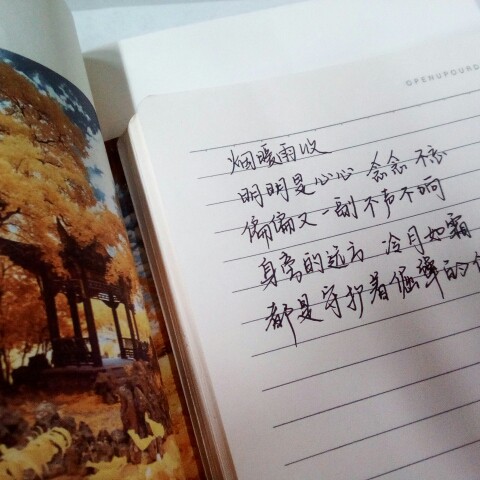 OPENUPOURD
烟暖雨收
明明是心心念念不忘
偏偏又一副不声不响
身旁的远方 冷月如霜
都是守护着倔犟的